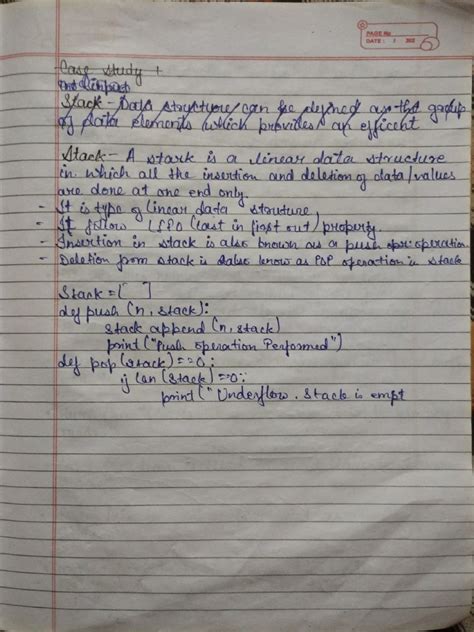 PAGE No
DATE : / 202
Case study 1
Stack - Data structure can be defined as the group
of data elements which provides an efficent
Stack - A stark is a linear data structure
in which all the insertion and deletion of data/values
are done at one end only.
- It is type of linear data struture
- It follow LIFO (last in first out) property.
- Insertion in stack is also known as a push operation
- Deletion from stack is also know as POP operation in stack
Stack = [ ]
def push (n, stack):
stack append (n, stack)
print ("Push operation Performed")
def pop (stack) == 0 :
if len (stack) == 0:
print ("Underflow. Stack is empt